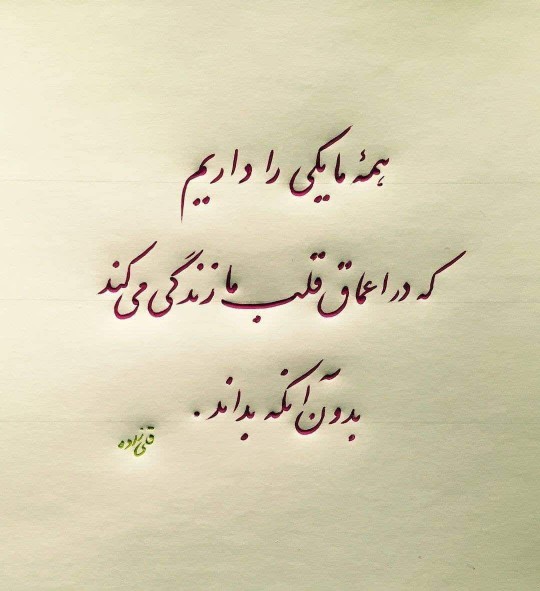 همهٔ ما یکی را داریم
که در اعماق قلب ما زندگی می‌کند
بدون آنکه بداند.
قلی‌زاده